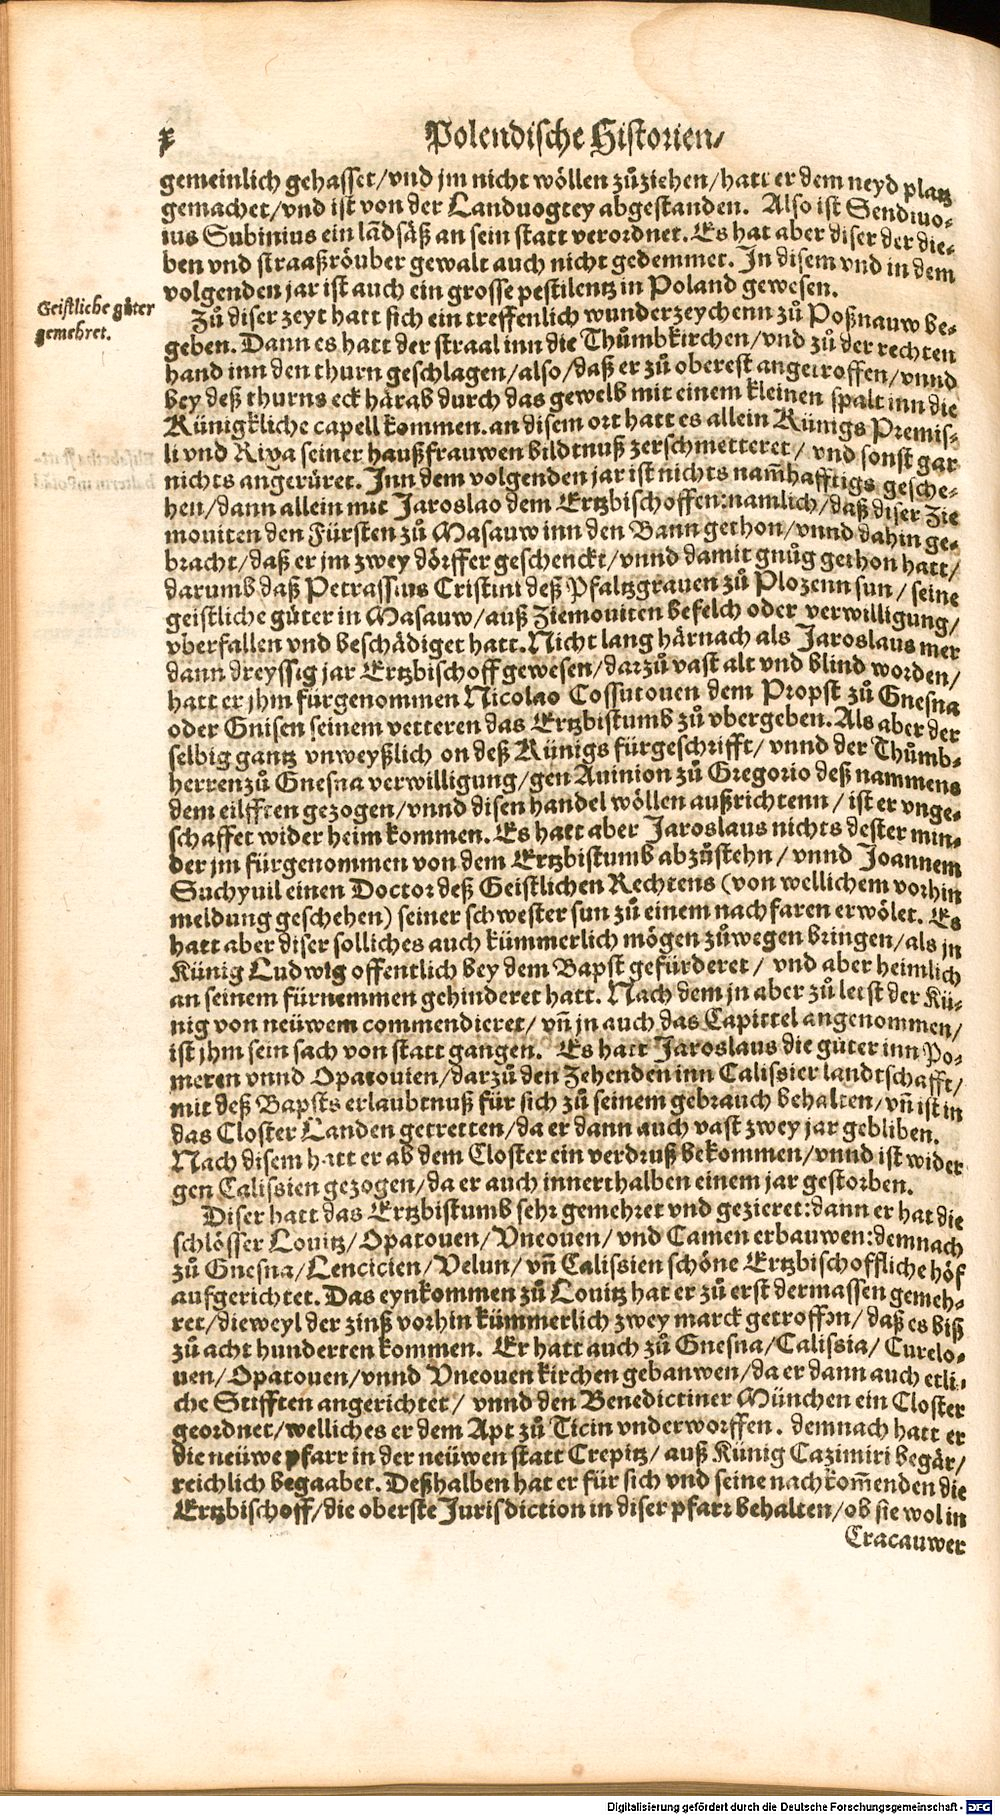 x
Polendische Historien/
gemeinlich gehasset/vnd jm nicht wöllen zůziehen/hatt er dem neyd platz
gemachet/vnd ist von der Landuogtey abgestanden. Also ist Sendiuo-
ius Subinius ein lādsäß an sein statt verordnet. Es hat aber diser der die-
ben vnd straaßröuber gewalt auch nicht gedemmet. In disem vnd in dem
volgenden jar ist auch ein grosse pestilentz in Poland gewesen.
Geistliche güter
gemehret.
Zů diser zeyt hatt sich ein treffenlich wunderzeychenn zů Poßnauw be-
geben. Dann es hatt der straal inn die Thůmbkirchen/vnd zů der rechten
hand inn den thurn geschlagen/also/daß er zů oberest angetroffen/vnnd
bey deß thurns eck härab durch das gewelb mit einem kleinen spalt inn die
Künigkliche capell kommen. an disem ort hatt es allein Künigs Premis-
li vnd Rixa seiner haußfrauwen bildtnuß zerschmetteret/ vnd sonst gar
nichts angerüret. Inn dem volgenden jar ist nichts nam̄hafftigs gesche-
hen/dann allein mit Jaroslao dem Ertzbischoffen: namlich/daß diser Zie
mouiten den Fürsten zů Masauw inn den Bann gethon/vnnd dahin ge-
bracht/daß er jm zwey dörffer geschenckt/vnnd damit gnůg gethon hatt/
darumb daß Petrassius Cristini deß Pfaltzgrauen zů Plozenn sun/ seine
geistliche güter in Masauw/auß Ziemouiten befelch oder verwilligung/
vberfallen vnd beschädiget hatt. Nicht lang härnach als Jaroslaus mer
dann dreyssig jar Ertzbischoff gewesen/darzů vast alt vnd blind worden/
hatt er jhm fürgenommen Nicolao Cossutouen dem Propst zů Gnesna
oder Gnisen seinem vetteren das Ertzbistumb zů vbergeben. Als aber der
selbig gantz vnweyßlich on deß Künigs fürgeschrifft/ vnnd der Thůmb-
herren zů Gnesna verwilligung/gen Auinion zů Gregorio deß nammens
dem eilfften gezogen/vnnd disen handel wöllen außrichtenn/ ist er vnge-
schaffet wider heim kommen. Es hatt aber Jaroslaus nichts dester min-
der jm fürgenommen von dem Ertzbistumb abzůstehn/ vnnd Joannem
Suchyuil einen Doctor deß Geistlichen Rechtens (von wellichem vorhin
meldung geschehen) seiner schwester sun zů einem nachfaren erwölet. Es
hatt aber diser solliches auch kümmerlich mögen zůwegen bringen/als jn
Künig Ludwig offentlich bey dem Bapst gefürderet/ vnd aber heimlich
an seinem fürnemmen gehinderet hatt. Nach dem jn aber zů letst der Kü-
nig von neüwem commendieret/ vn̄ jn auch das Capittel angenommen/
ist jhm sein sach von statt gangen. Es hatt Jaroslaus die güter inn Po-
meren vnnd Opatouien/darzů den Zehenden inn Calissier landtschafft/
mit deß Bapsts erlaubtnuß für sich zů seinem gebrauch behalten/vn̄ ist in
das Closter Landen getretten/da er dann auch vast zwey jar gebliben.
Nach disem hatt er ab dem Closter ein verdruß bekommen/vnnd ist wider
gen Calissien gezogen/da er auch innerthalben einem jar gestorben.
Diser hatt das Ertzbistumb sehr gemehret vnd gezieret: dann er hat die
schlösser Louitz/Opatouen/Vneouen/ vnd Camen erbauwen: demnach
zů Gnesna/Lencicien/Velun/ vn̄ Calissien schöne Ertzbischoffliche höf
aufgerichtet. Das eynkommen zů Louitz hat er zů erst dermassen gemeh-
ret/dieweyl der zinß vorhin kümmerlich zwey marck getroffen/daß es biß
zů acht hunderten kommen. Er hatt auch zů Gnesna/Calissia/ Curelo-
uen/Opatouen/vnnd Vneouen kirchen gebauwen/da er dann auch etli-
che Stifften angerichtet/ vnnd den Benedictiner München ein Closter
geordnet/welliches er dem Apt zů Ticin vnderworffen. demnach hatt er
die neüwe pfarr in der neüwen statt Crepitz/ auß Künig Cazimiri begär/
reichlich begaabet. Deßhalben hat er für sich vnd seine nachkom̄enden die
Ertzbischoff/die oberste Jurisdiction in diser pfarr behalten/ob sie wol in
Cracauwer
Digitalisierung gefördert durch die Deutsche Forschungsgemeinschaft - DFG